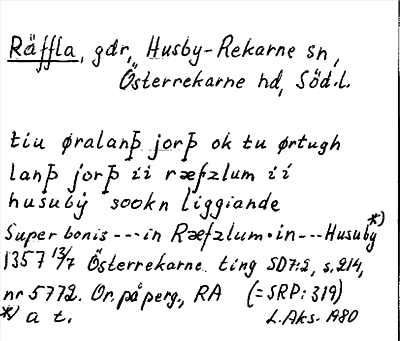 Räffla, gdr, Husby-Rekarne sn,
Österrekarne hd, Söd.l.
tiu øralanþ jorþ ok tu ørtugh
lanþ jorþ ii ræfzlum ii
husuby sookn liggiande
Super bonis --- in Ræfzlum · in --- Husuby *)
1357 13/7 Österrekarne ting SD7:2, s. 214,
nr 5772. Or. på perg., RA (= SRP: 319)
*) a t. L. Aks. 1980